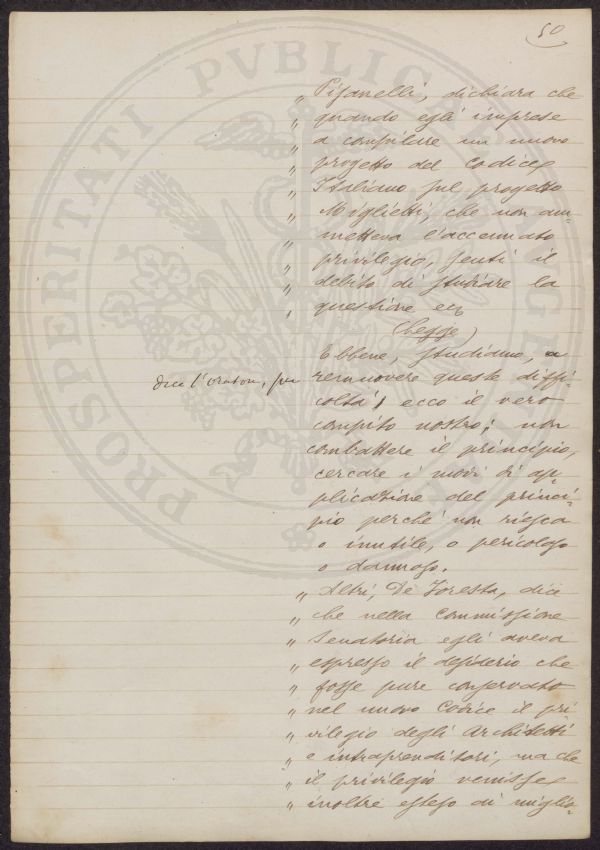 50
„ Pisanelli, dichiara che
„ quando egli imprese
„ a compilare un nuovo
„ progetto del Codice
„ Italiano sul progetto
„ Miglietti, che non am-
„ metteva l'accennato
„ privilegio, sentì il
„ debito di studiare la
„ questione ec
(Legge)
Ebbene, studiamo, a
dice l'oratore, per rimuovere queste diffi-
coltà, ecco il vero
compito nostro; non
combattere il principio,
cercare i modi di ap-
plicazione del princi-
pio perché non riesca
o inutile, o pericoloso
o dannoso.
„ Altri, De Foresta, dice
„ che nella Commissione
„ Senatoria egli aveva
„ espresso il desiderio che
„ fosse pure conservato
„ nel nuovo Codice il pri-
„ vilegio degli Architetti
„ e intraprenditori, ma che
„ il privilegio venisse
„ inoltre esteso ai miglio-
PROSPERITATI PVBLICAE AVGENDAE